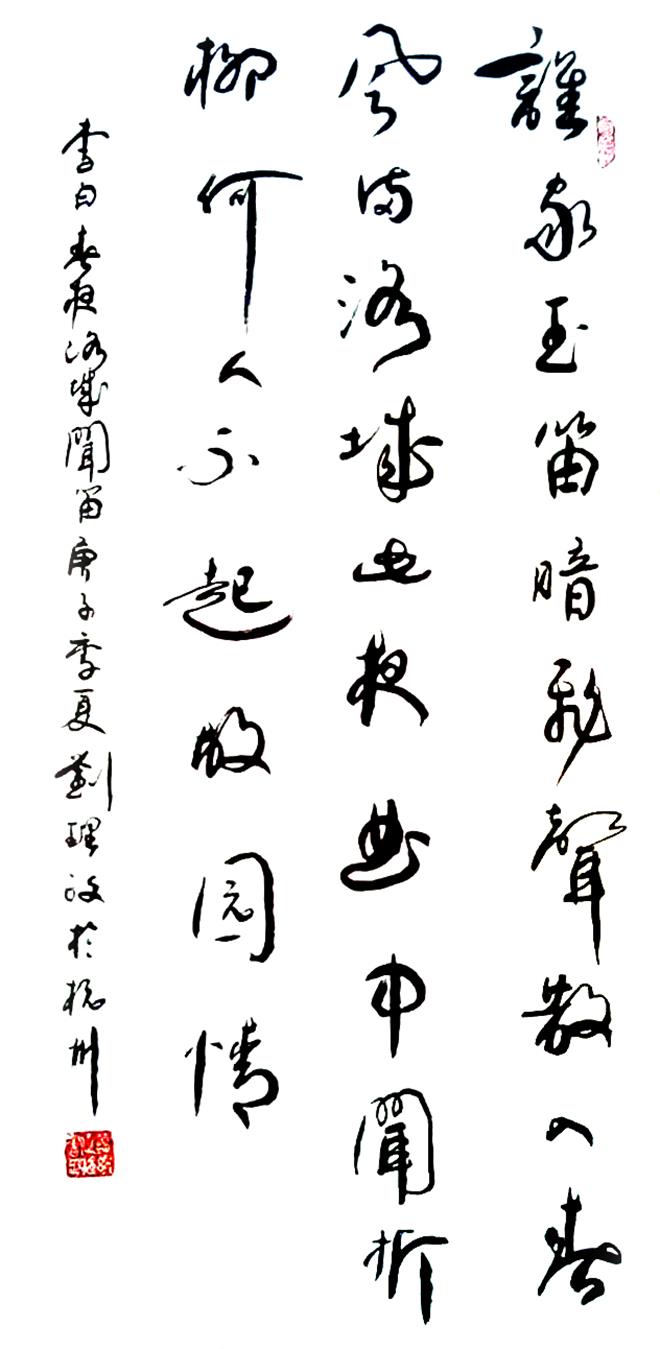 誰家玉笛暗飛聲散入春
風滿洛城此夜曲中聞折
柳何人不起故園情
李白春夜洛城聞笛庚子季夏劉理政於杭州